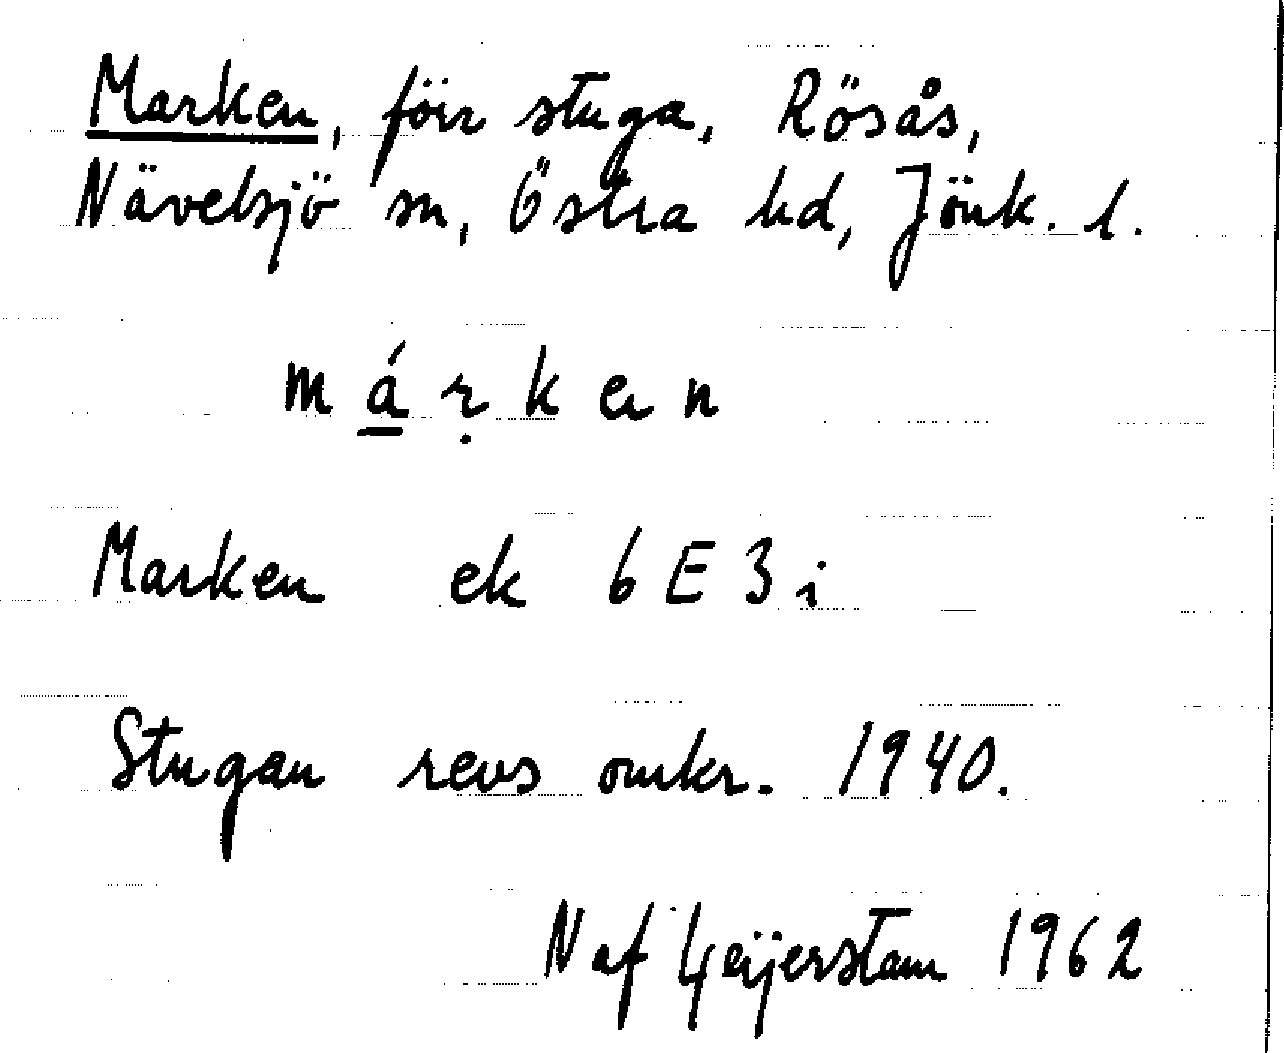 Marken, förr stuga, Rösås,
Nävelsjö sn, Östra hd, Jönk. l.
má̲ṛken
Marken ek 6E3i
Stugan revs omkr. 1940.
N af Geijerstam 1962